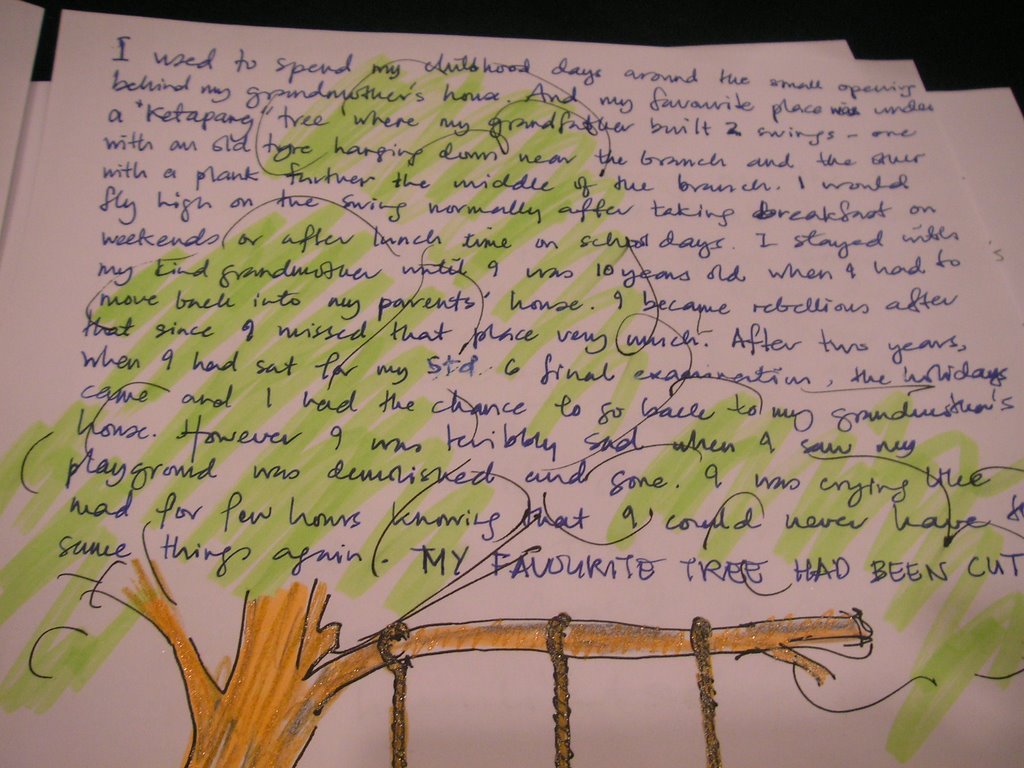 I used to spend my childhood days around the small opening
behind my grandmother's house. And my favourite place was under
a "Ketapang" tree where my grandfather built 2 swings - one
with an old tyre hanging down near the branch and the other
with a plank further the middle of the branch. I would
fly high on the swing normally after taking breakfast on
weekends or after lunch time on school days. I stayed with
my kind grandmother until I was 10 years old when I had to
move back into my parents' house. I became rebellious after
that since I missed that place very much. After two years,
when I had sat for my Std. 6 final examination, the holidays
came and I had the chance to go back to my grandmother's
house. However I was terribly sad when I saw my
playground was demolished and gone. I was crying like
mad for few hours knowing that I could never have
same things again. MY FAVOURITE TREE HAD BEEN CUT